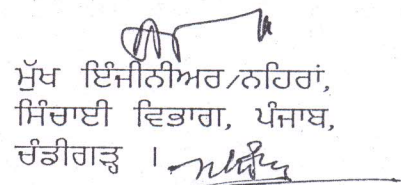 ਮੁੱਖ ਇੰਜੀਨੀਅਰ/ਨਹਿਰਾਂ,
ਸਿੰਚਾਈ ਵਿਭਾਗ, ਪੰਜਾਬ,
ਚੰਡੀਗੜ੍ਹ ।